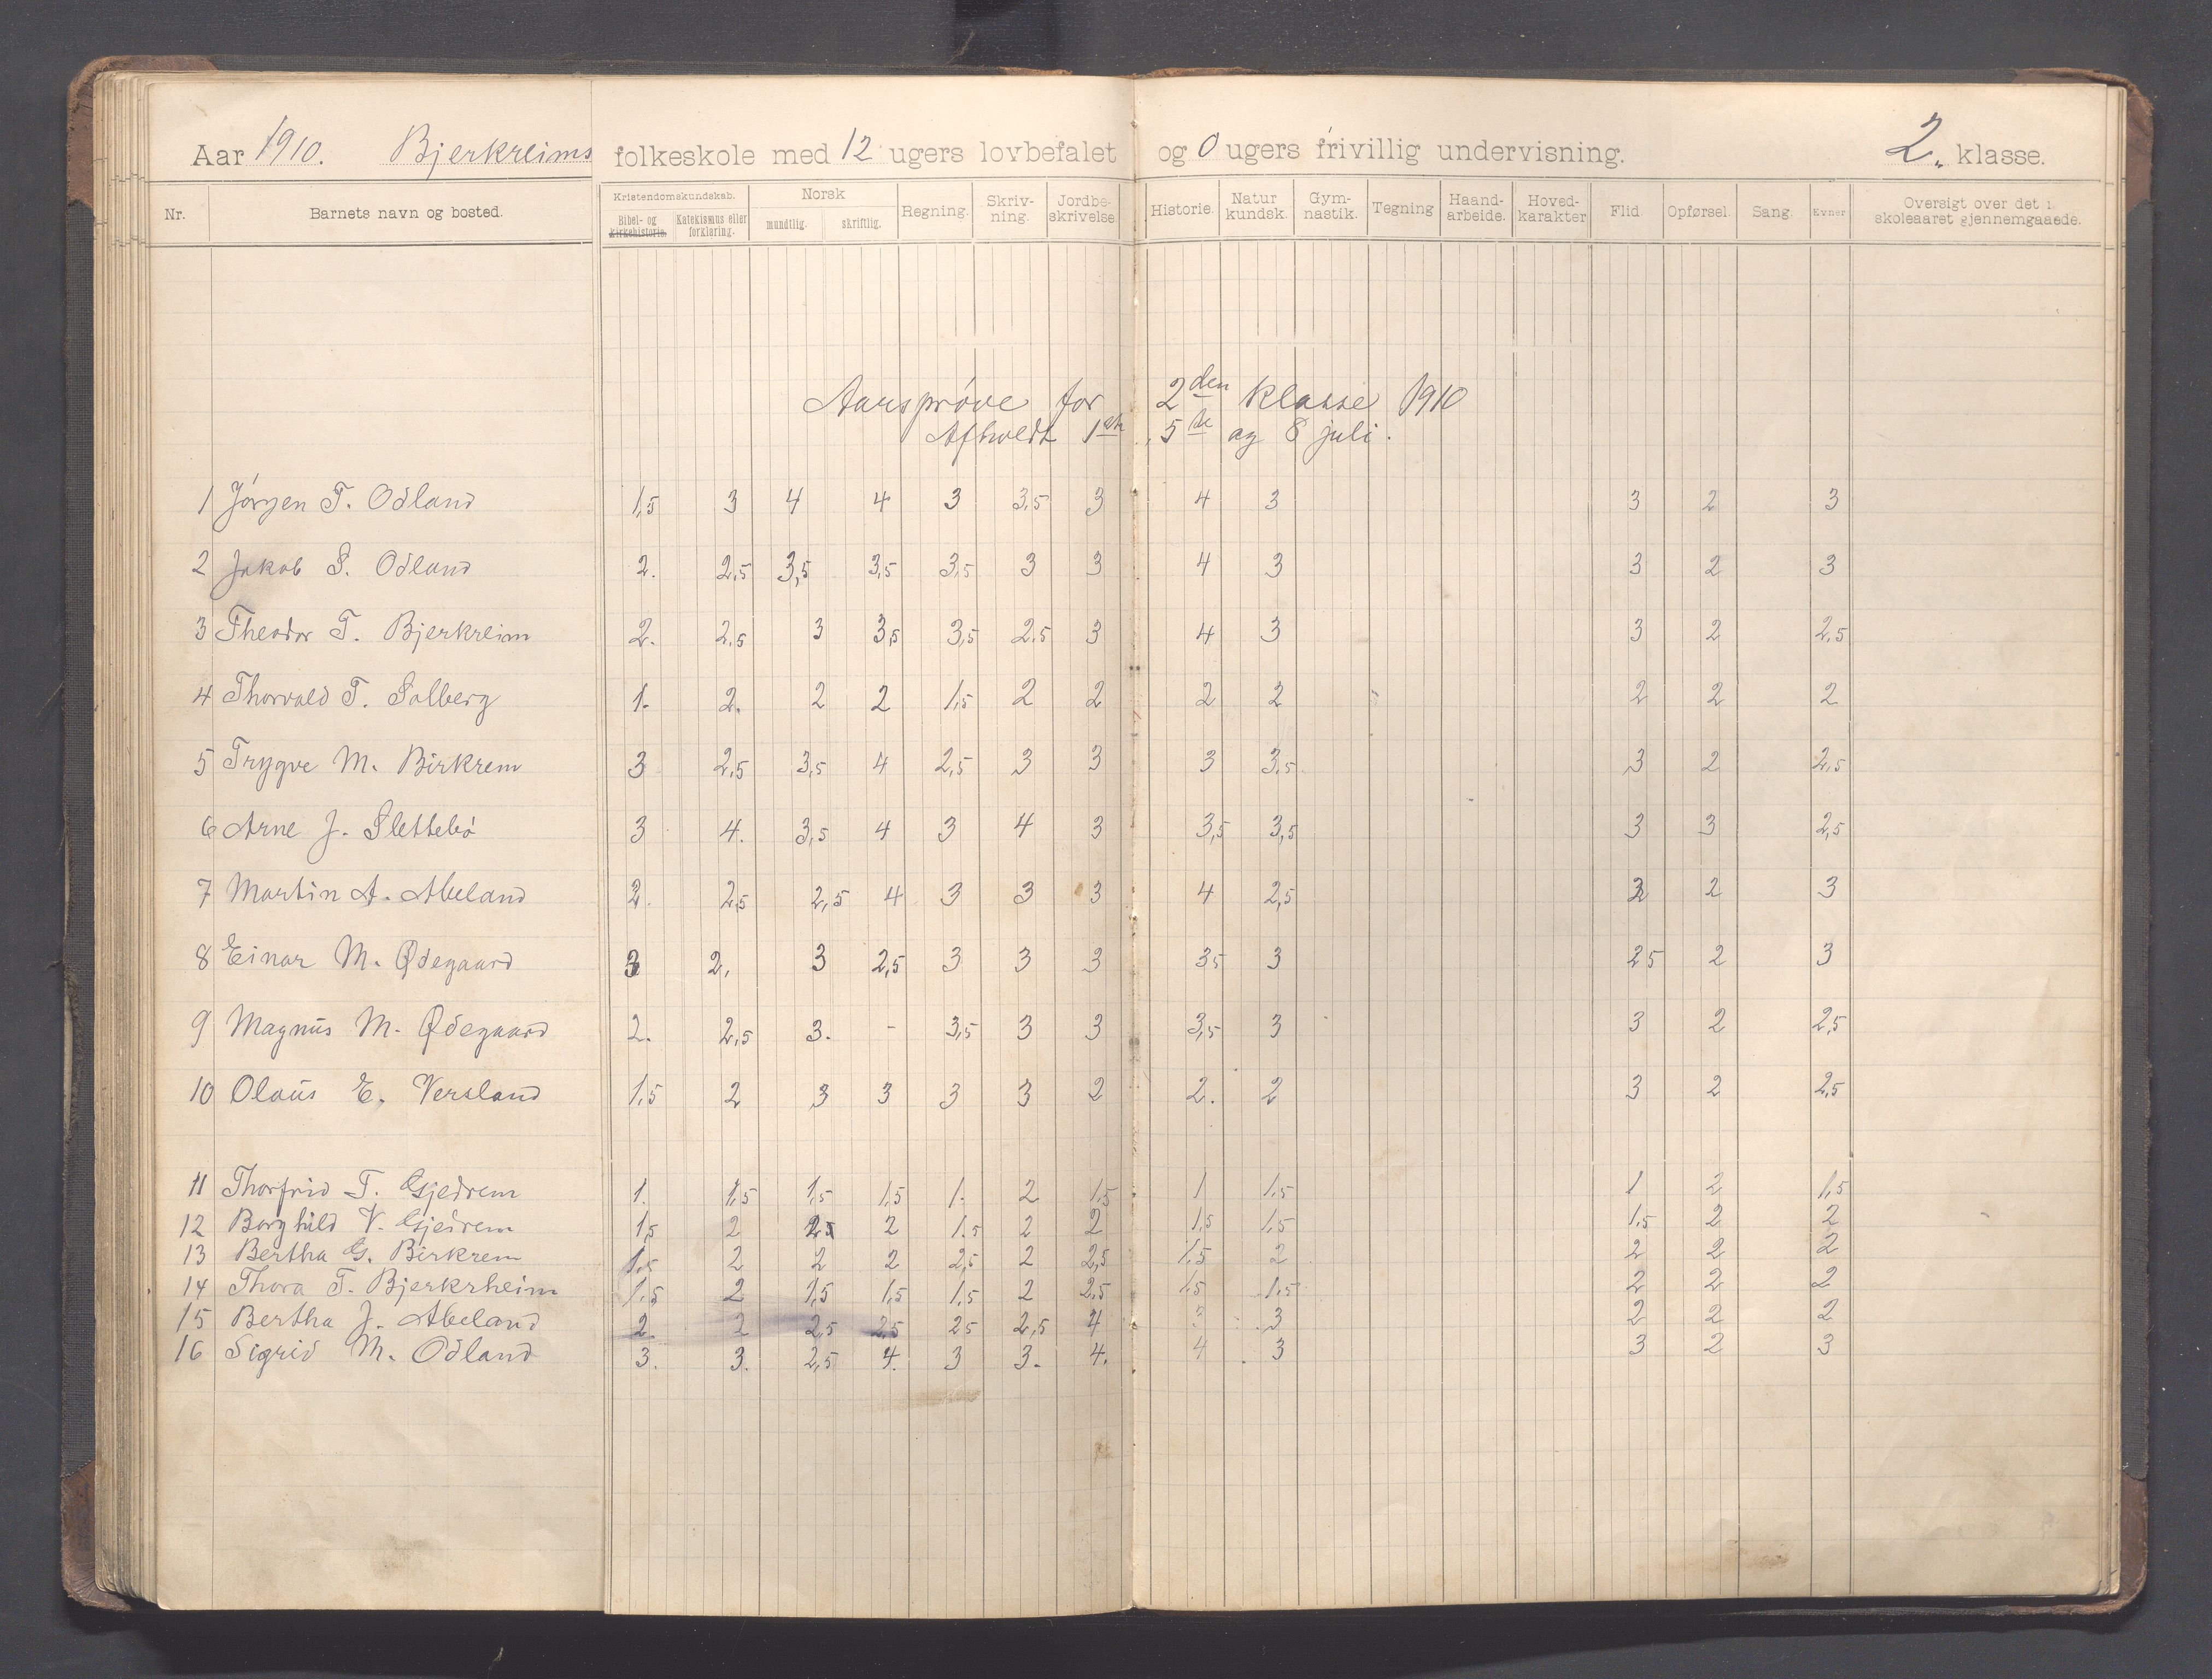 Aar 1910. Bjerkreims folkeskole med 12 ugers lovbefalet og 0 ugers frivillig undervisning. 2. klasse.
Nr. Barnets navn og bosted. Kristendomskundskab. Bibel- og kirkehistorie. Katekismus eller forklaring. Norsk mundtlig. skriftlig. Regning. Skriv-ning. Jordbe-skrivelse. Historie. Natur kundsk. Gym-nastik. Tegning Haand-arbeide. Hoved-karakter Flid. Opførsel. Sang. Evner Oversigt over det i skoleaaret gjennemgaaede.
Aarsprøve for 2den Klasse 1910
Afholdt 1ste, 5te og 8 juli.
1 Jørgen T. Odland 1,5 3 4 4 3 3,5 3 4 3 3 2 3
2 Jakob S. Odland 2. 2,5 3,5 3,5 3,5 3 3 4 3 3 2 3
3 Theodor T. Bjerkreim 2. 2,5 3 3,5 3,5 2,5 3 4 3 3 2 2,5
4 Thorvald T. Solberg 1. 2. 2 2 1,5 2 2 2 2 2 2 2
5 Trygve M. Birkrem 3 2,5 3,5 4 2,5 3 3 3 3,5 3 2 2,5
6 Arne J. Slettebø 3 4. 3,5 4 3 4 3 3,5 3,5 3 3 2,5
7 Martin A. Abeland 2. 2,5 2,5 4 3 3 3 4 2,5 3 2 3
8 Einar M. Ødegaard 3 2, 3 2,5 3 3 3 3,5 3 2,5 2 3
9 Magnus M. Ødegaard 2. 2,5 3. - 3,5 3 3 3,5 3 3 2 2,5
10 Olaus E. Versland 1,5 2 3 3 3 3 2 2. 2 3 2 2,5
11 Thorfrid T. Gjedrem 1. 1,5 1,5 1,5 1. 2 1,5 1 1,5 1 2 1,5
12 Borghild V. Gjedrem 1,5 2 2,5 2 1,5 2 2 1,5 1,5 1,5 2 2
13 Bertha G. Birkrem 1,5 2 2 2 2,5 2 2,5 1,5 2 2 2 2
14 Thora T. Bjerkrheim 1,5 2 1,5 1,5 1,5 2 2,5 1,5 1,5 2 2 2
15 Bertha J. Abeland 2. 2 2,5 2,5 2,5 2,5 4 3 2 2 2
16 Sigrid M. Odland 3. 3. 2,5 4. 3 3. 4. 4 3 3 2 3